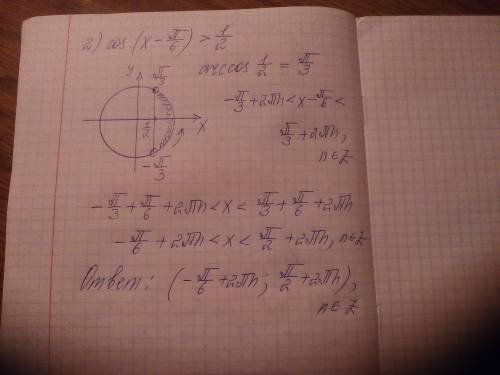 2) cos(x - π/6) > 1/2
arccos 1/2 = π/3
y π/3
-π/3 + 2πn < x - π/6 <
x
1/2
π/3 + 2πn,
-π/3
n∈Z
-π/3 + π/6 + 2πn < x < π/3 + π/6 + 2πn
-π/6 + 2πn < x < π/2 + 2πn, n∈Z
Ответ: (-π/6 + 2πn; π/2 + 2πn),
n∈Z